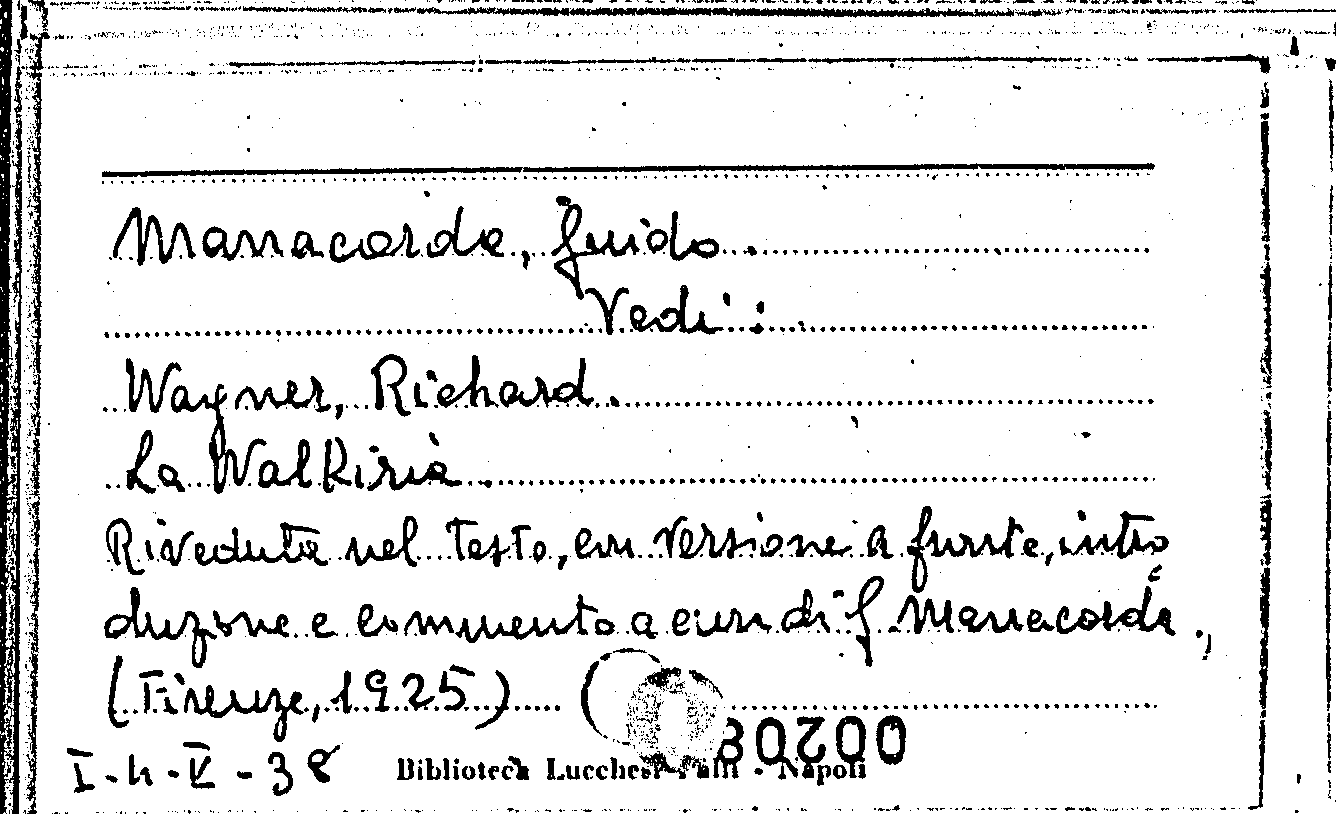 Manacorda, Guido.
Vedi:
Wagner, Richard.
La Walkiria.
Riveduta nel testo, con versione a fronte, intro
duzione e commento a cura di G. Manacorda,
(Firenze, 1925)
I-4-V-38 Biblioteca Lucchesi-Palli - Napoli